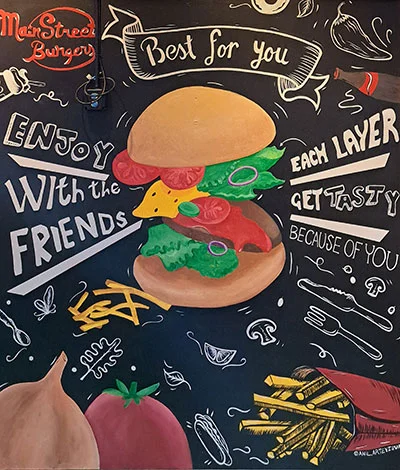 MainStreet
Burgers
Best for you
ENJOY
With the
FRIENDS
EACH LAYER
GET TASTY
BECAUSE OF YOU